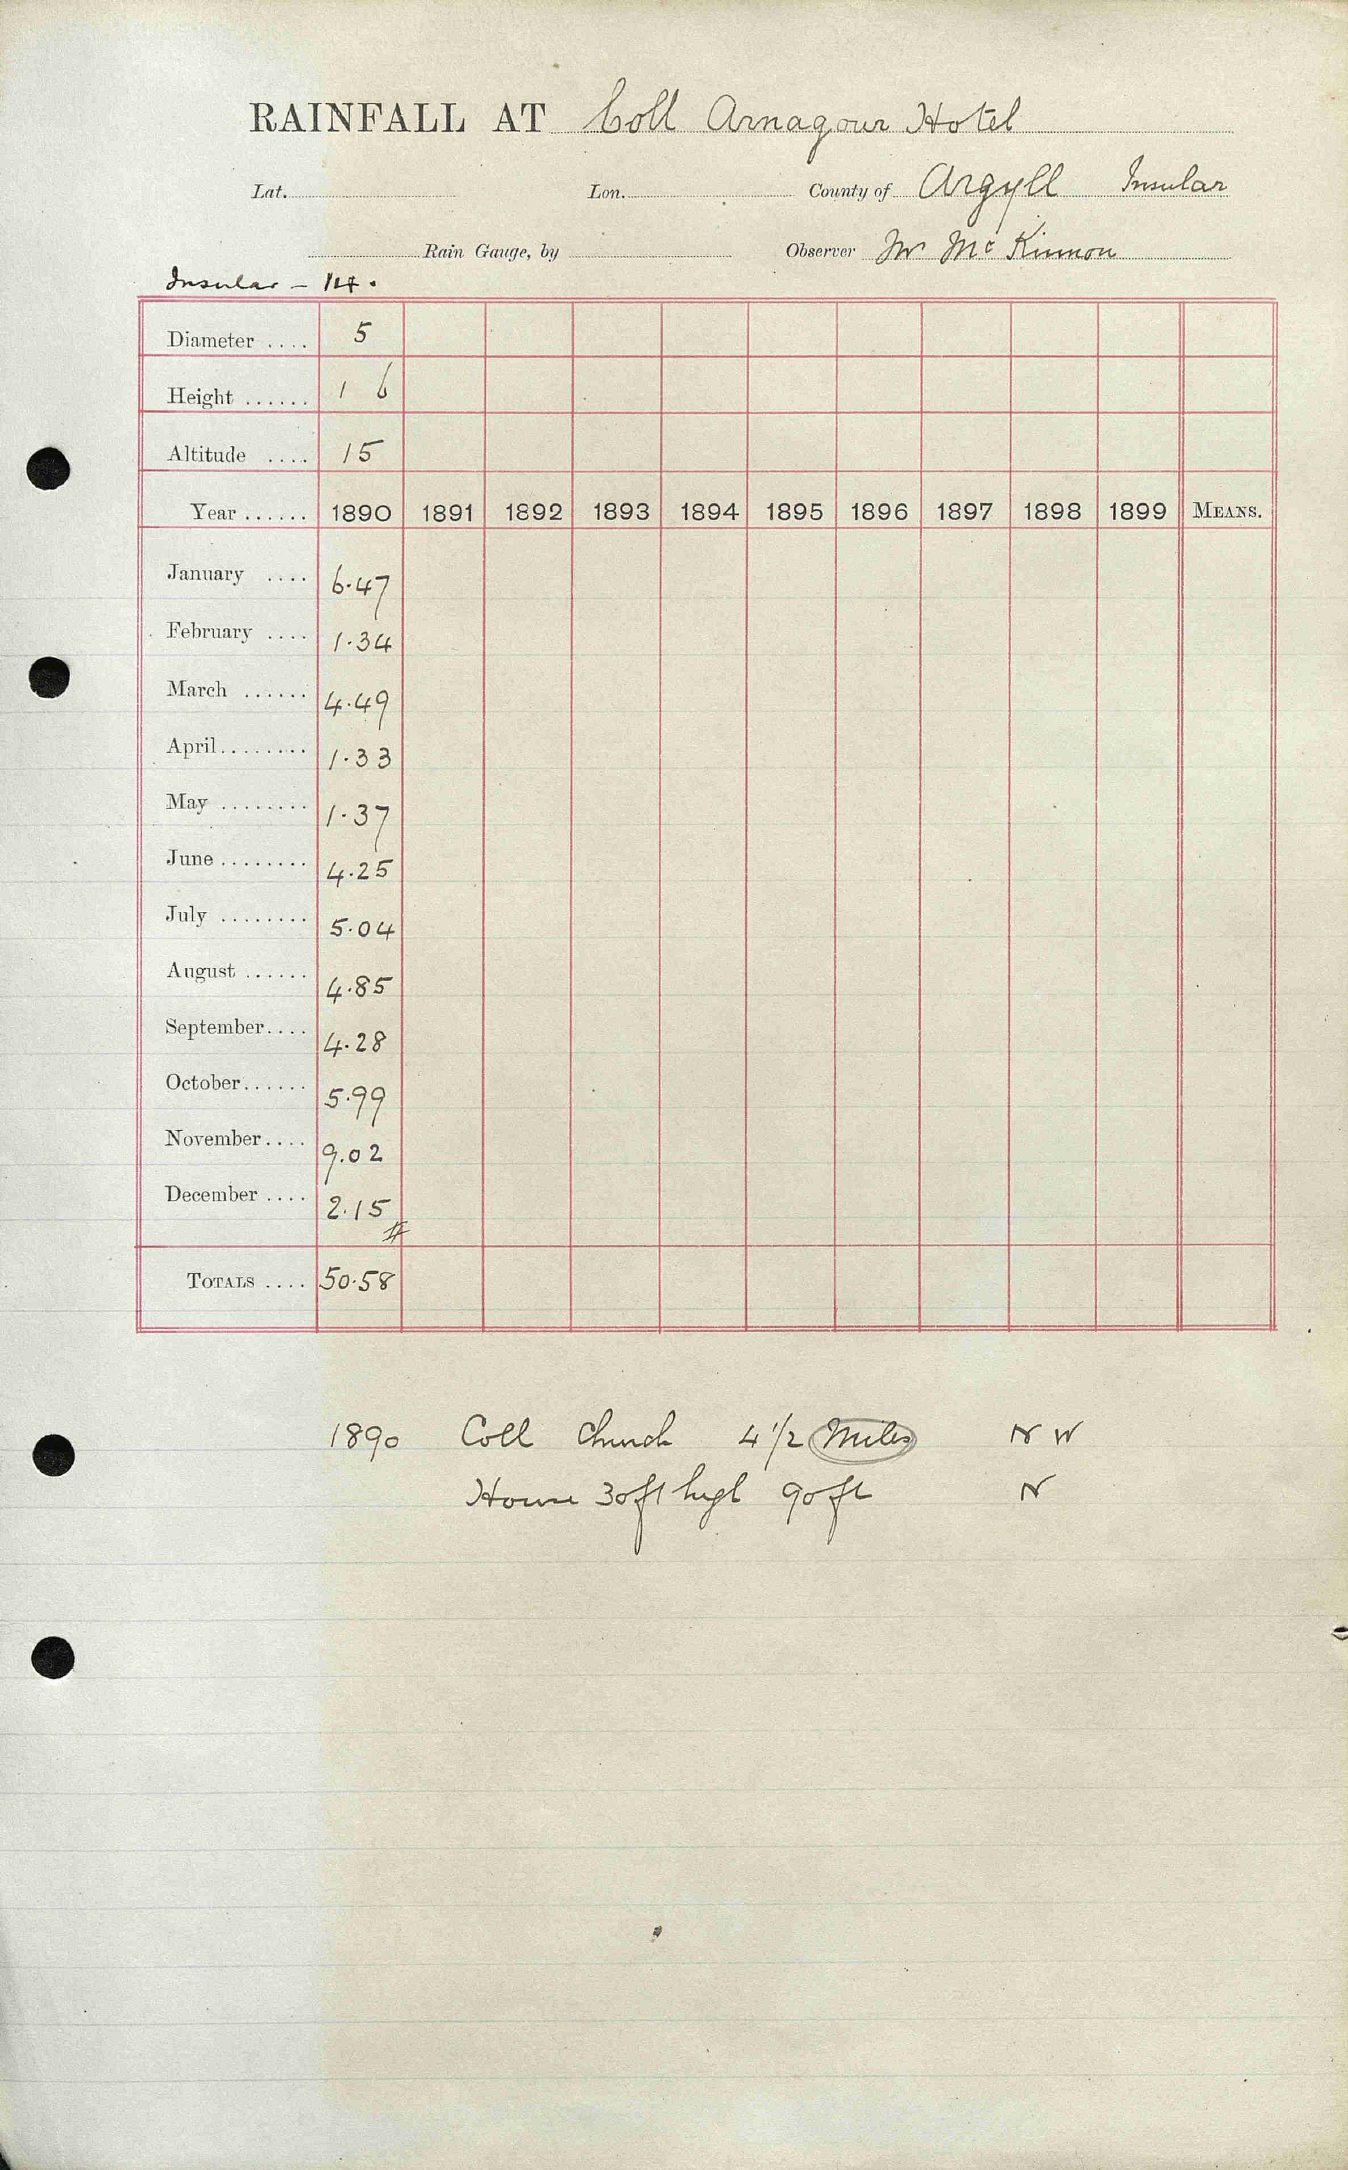 RAINFALL AT Coll Arnagour Hotel
Lat. Lon. County of Argyll Insular
Rain Gauge, by Observer Mr McKinnon
Insular – 14.
Diameter .... 5
Height ...... 1 6
Altitude .... 15
Year ...... 1890 1891 1892 1893 1894 1895 1896 1897 1898 1899 MEANS.
January .... 6.47
February .... 1.34
March ...... 4.49
April........ 1.33
May ........ 1.37
June ........ 4.25
July ........ 5.04
August ...... 4.85
September.... 4.28
October...... 5.99
November.... 9.02
December .... 2.15
#
TOTALS .... 50.58
1890 Coll Church 4 1/2 Miles N W
House 30ft high 90 ft N